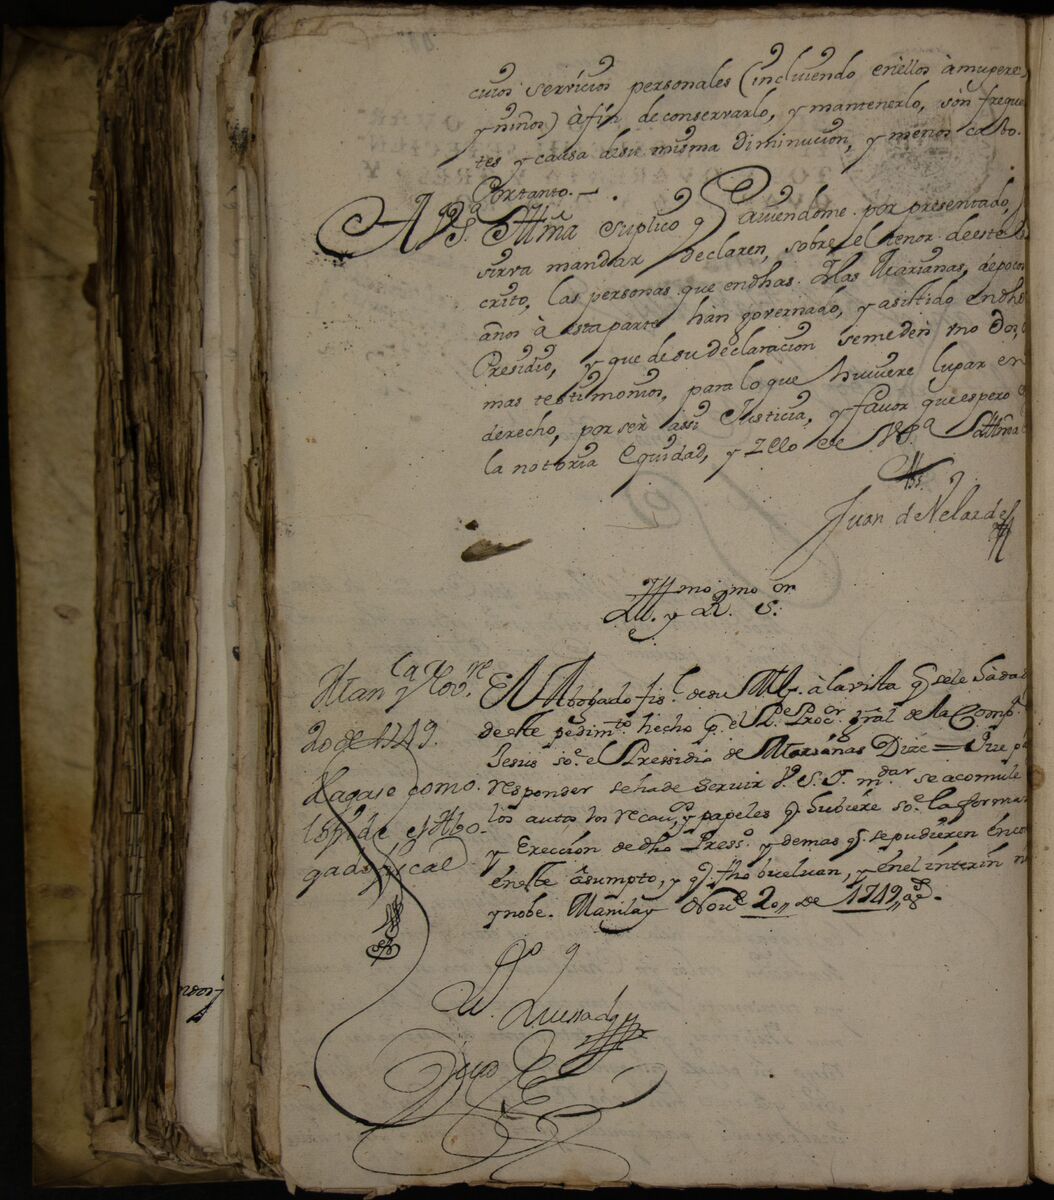 cuios servicios personales (incluiendo en ellos à mugere
y niños) à fin de conservarlo, y mantenerlo, sòn freque
tes y causa de su misma diminucion, y menos cabo.
Portanto.
A V.S.ª Illma suplico q haviendome por presentado,
sirva mandar declaren, sobre el tenor de este
crito, las personas que en dhas Yslas Marianas, de pocos
años à esta parte han governado, y asistido en dho
Presidio, y que de su declaracion se me den uno Dos,
mas testimonios, para lo que huviere lugar en
derecho, por ser assi Justicia, y favor que espero
la notoria Equidad, y Zelo de V.S.ª Illma
Juan de Velarde
Yllmo y Rmo Sor
Man.la y Nov.re
20 de 1749.
Hagase como
lo pide el Abo-
gado fiscal
El Abogado fis.l de su Mag. à la vista q se le hà dado
de este pedim.to hecho p.r el P.e Proc.or gral de la Comp.a
Jesus so.e el Pressidio de Marianas Dize = Que p.a
responder se ha de servir V.S.I. mandar se acomule
los autos, y papeles q. hubiere so.e la forma
y Ereccion de dho Press.o y demas q. se pudieren enco
en este asumpto, y q. fho buelvan, y en el interin
y nobe. Manila y Nov.e 20,, de 1749,, a.s
Quessada